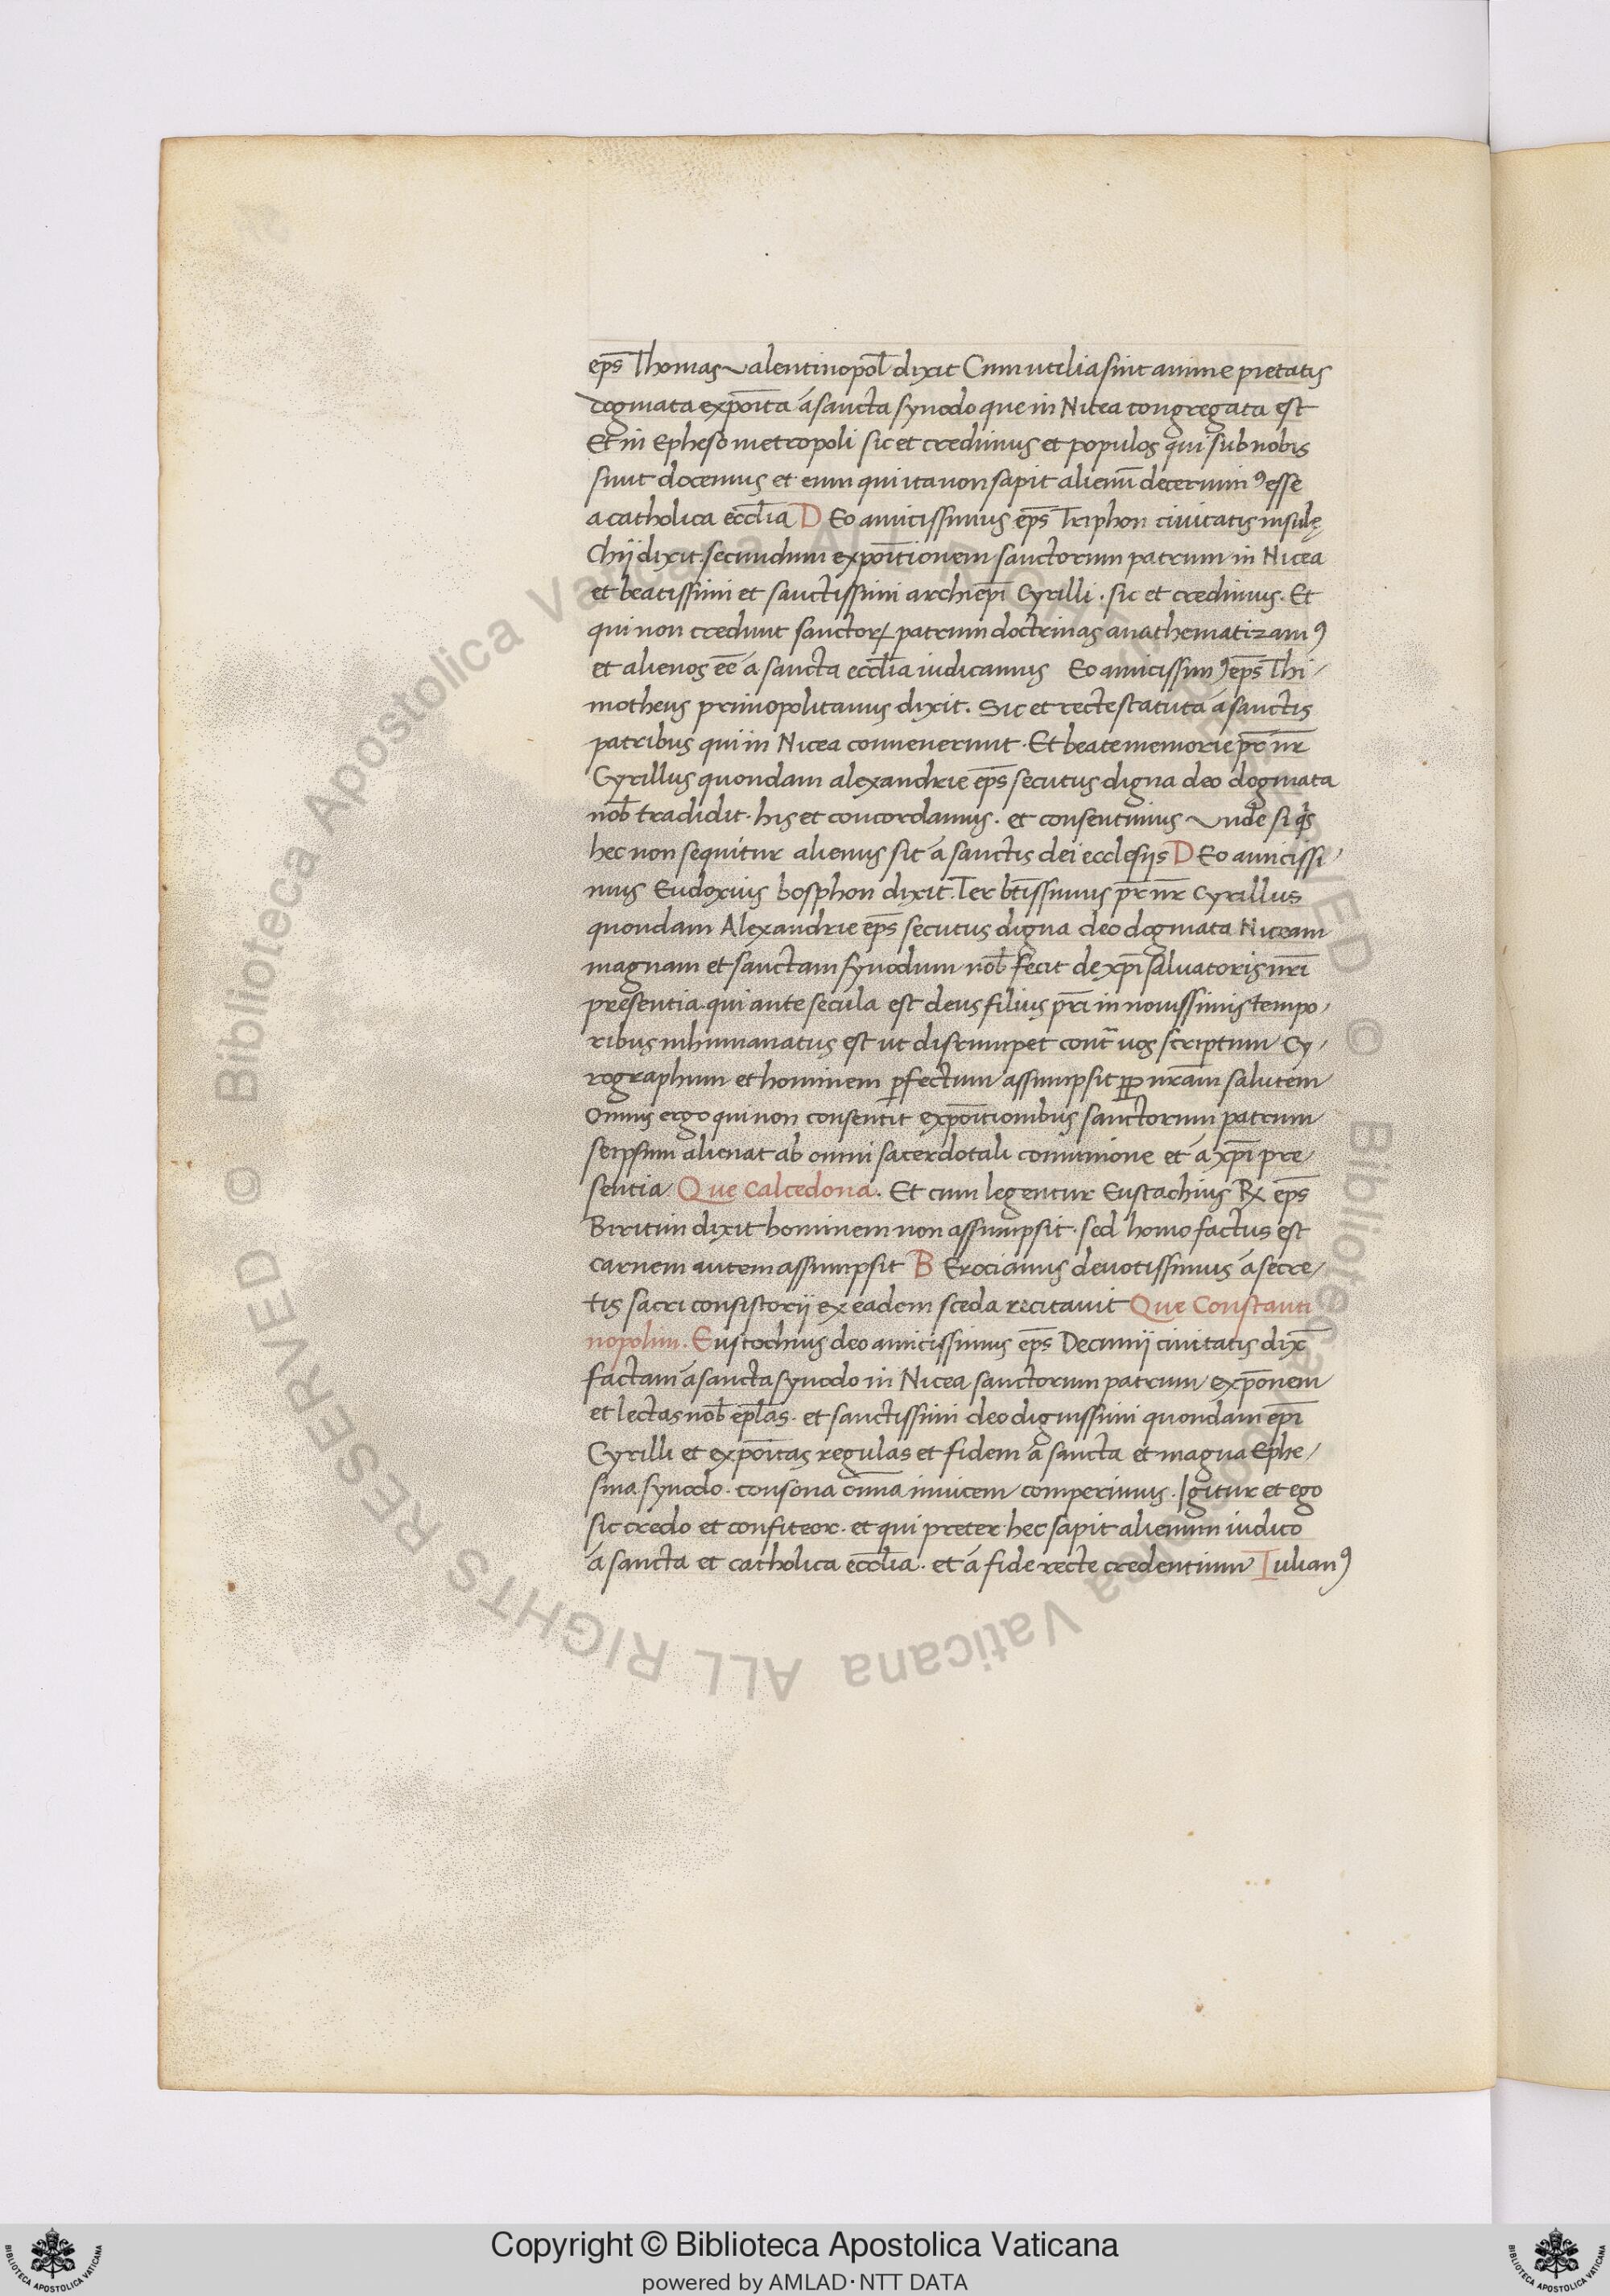 ep̄s Thomas valentinopol̄ dixit Cum utilia sint anime pietatis
dogmata expōita á sancta synodo que in Nicea congregata est
Et in Epheso metropoli sic et credimus et populos qui sub nobis
sunt docemus et eum qui ita non sapit alienū decernimꝰ esse
a catholica eccl̄ia D Eo amicissimus ep̄s Triphon ciuitatis insulę
Chij dixit. secundum expoītionem sanctorum patrum in Nicea
et beatissimi et sanctissimi archiep̄i Cyrilli . sic et credimus . Et
qui non credunt sanctoꝝ patrum doctrinas anathematizamꝰ
et alienos eē á sancta eccl̄ia iudicamus Eo amicissimꝰ ep̄s Thi/
motheus primopolitanus dixit. Sic et recte statuta á sanctis
patribus qui in Nicea conuenerunt . Et beate memorie pr̄ nr̄
Cyrillus quondam alexandrie ep̄s secutus digna deo dogmata
nob̄ tradidit . his et concordamus . et consentimus vnde si qs̄
hec non sequitur alienus sit á sanctis dei ecclesijs D Eo amicissi/
mus Eudoxius bosphori dixit. Ter bt̄issimus pr̄ nr̄ Cyrillus
quondam Alexandrie ep̄s secutus digna deo dogmata Niceam
magnam et sanctam synodum nob̄ fecit de xp̄i saluatoris nr̄i
presentia . qui ante secula est deus filius pr̄i in nouissimis tempo/
ribus inhumanatus est ut disrumpet cont̄ nos scriptum Cy/
rographum et hominem ꝑfectum assumpsit pp̄ nr̄am salutem
Omnis ergo qui non consentit expoītionibus sanctorum patrum
seipsum alienat ab omni sacerdotali comunione et á xp̄i pre/
sentia Que Calcedona . Et cum legentur Eustachius Rx ep̄s
Biritim dixit hominem non assumpsit . sed homo factus est
carnem autem assumpsit B Erocianus deuotissimus á secre/
tis sacri consistorij ex eadem sceda recitauit Que Constanti
nopolim . Eustochius deo amicissimus ep̄s Decimij ciuitatis dix̄
factam á sancta synodo in Nicea sanctorum patrum exp̄onem
et lectas nob̄ epl̄as . et sanctissimi deo dignissimi quondam ep̄i
Cyrilli et expoītas regulas et fidem á sancta et magna Ephe/
sina synodo . consona om̄a inuicem comperimus . Igitur et ego
sic credo et confiteor . et qui preter hec sapit alienum iudico
á sancta et catholica eccl̄ia . et á fide recte credentium Iulianꝰ
© Biblioteca Apostolica Vaticana ALL RIGHTS RESERVED © Biblioteca Apostolica Vaticana ALL RIGHTS RESERVED
Copyright © Biblioteca Apostolica Vaticana
powered by AMLAD·NTT DATA
BIBLIOTECA APOSTOLICA VATICANA
BIBLIOTECA APOSTOLICA VATICANA